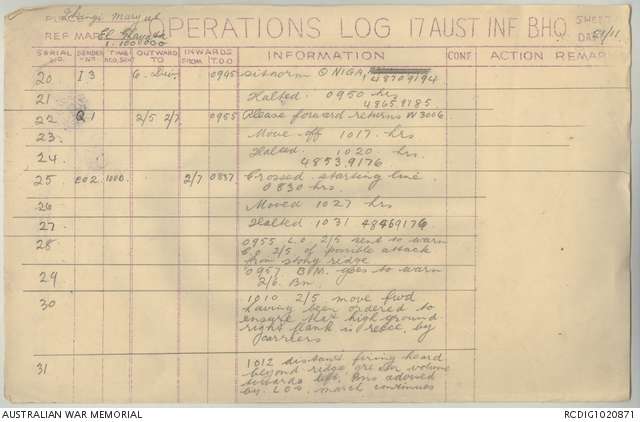 OPERATIONS LOG 17 AUST INF BHQ SHEET
REF MAP El
1:100000
DATE 21/11
SERIAL NO. SENDER NO. TIME OUTWARD TO INWARDS FROM T.O.O INFORMATION CONF. ACTION REMAR
20 I 3 6 Div. 0945 Sitnorm O NIGA
48709194
21 Halted 0950 hrs
48659185.
22 Q1 2/5 2/7 0955 Please forward returns W3006.
23. Move off 1017 hrs
24. Halted 1020 hrs.
48539176
25 E02 1000. 2/7 0837 Crossed starting line.
0830 hrs.
26 Moved 1027 hrs
27 Halted 1031 48469176
28 0955 L.O. 2/5 sent to warn
2/5 of possible attack
from stony ridge
29 0957 B.M. goes to warn
2/6 Bn.
30 1010 2/5 move fwd
having been ordered to
ensure that high ground
right flank is recce. by
carriers
31 1012 distant firing heard
beyond ridge, volume
towards left. Bns advised
by L.Os. march continues
AUSTRALIAN WAR MEMORIAL RCDIG1020871